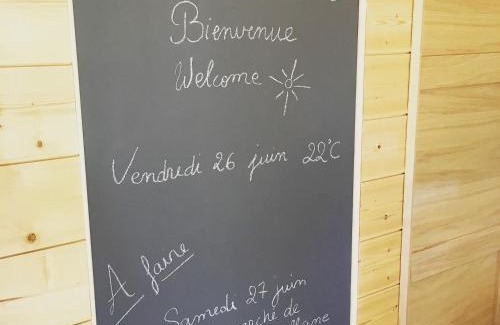 Bienvenue
Welcome
Vendredi 26 juin 22°C
A faire
Samedi 27 juin
de